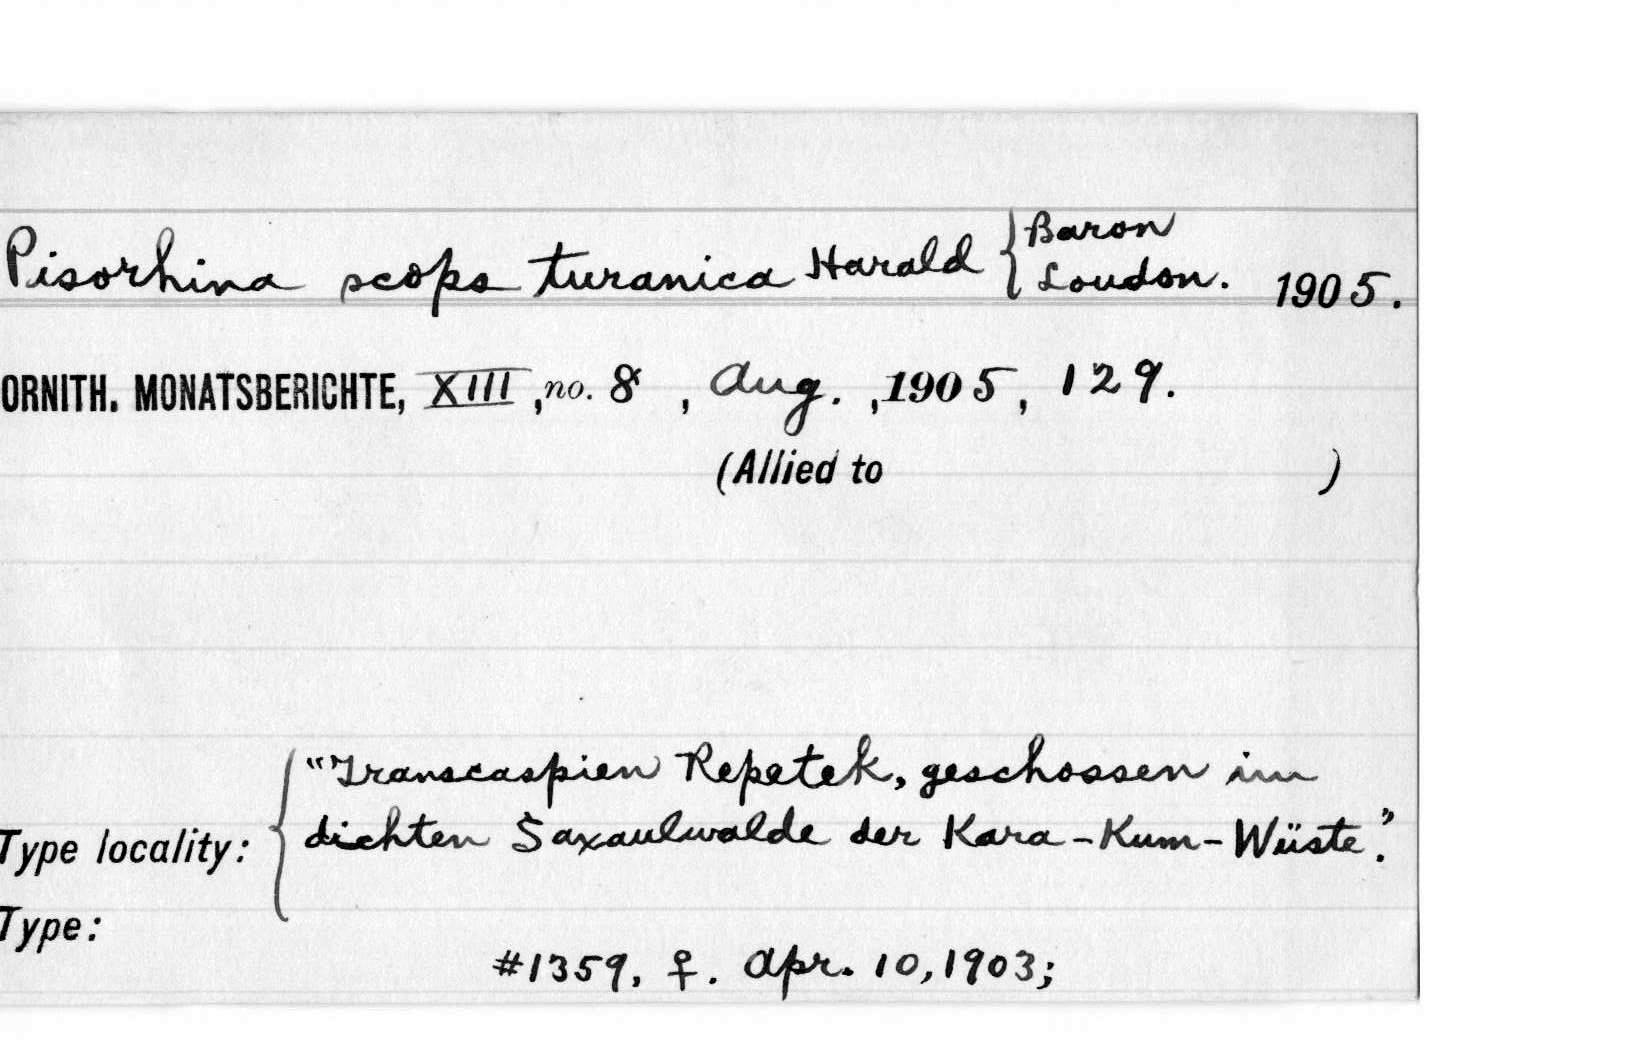 Pisorhina scops turanica Harald { Baron Loudon. 1905.
ORNITH. MONATSBERICHTE, XIII, no. 8, Aug., 1905, 129.
(Allied to )
Type locality: { "Transcaspien Repetek, geschossen im
dichten Saxaulwalde der Kara-Kum-Wüste."
Type:
#1359, ♀. Apr. 10, 1903;